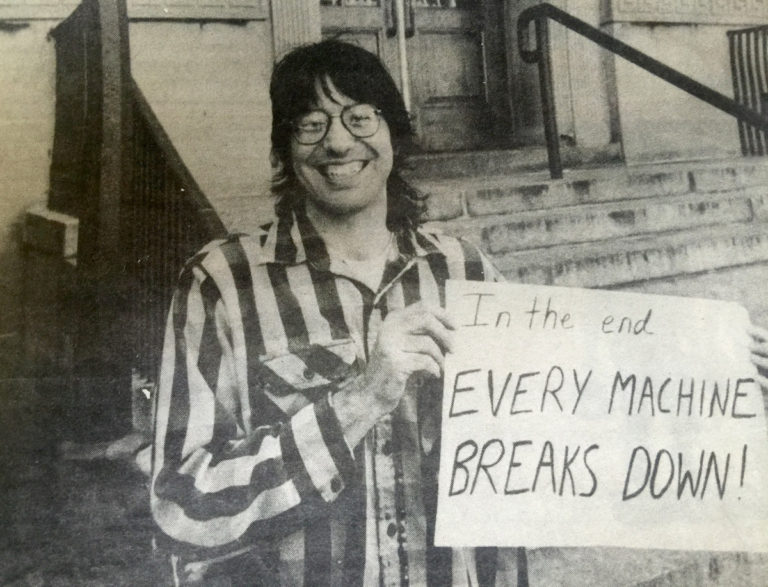 In the end
EVERY MACHINE
BREAKS DOWN!